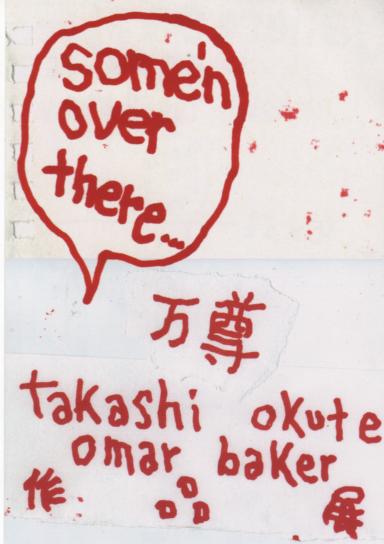 some'n
over
there...
万尊
takashi okute
omar baker
作品展